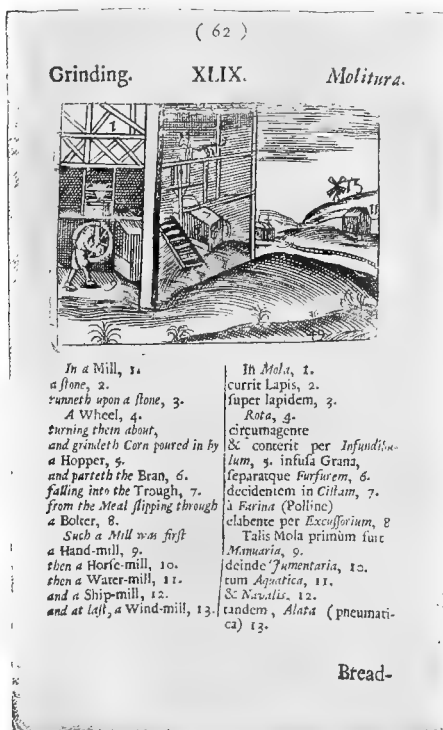 ( 62 )
Grinding. XLIX. Molitura.
In a Mill, 1.
a ſtone, 2.
runneth upon a ſtone, 3.
A Wheel, 4.
turning them about,
and grindeth Corn poured in by
a Hopper, 5.
and parteth the Bran, 6.
falling into the Trough, 7.
from the Meal ſlipping through
a Bolter, 8.
Such a Mill was firſt
a Hand-mill, 9.
then a Horſe-mill, 10.
then a Water-mill, 11.
and a Ship-mill, 12.
and at laſt, a Wind-mill, 13.
In Mola, 1.
currit Lapis, 2.
ſuper lapidem, 3.
Rota, 4.
circumagente
& conterit per Infundibu-
lum, 5. infuſa Grana,
ſeparatque Furfurem, 6.
decidentem in Ciſtam, 7.
à Farina (Polline)
elabente per Excuſſorium, 8
Talis Mola primùm fuit
Manuaria, 9.
deinde Jumentaria, 10.
tum Aquatica, 11.
& Navalis, 12.
tandem, Alata (pneumati-
ca) 13.
Bread-